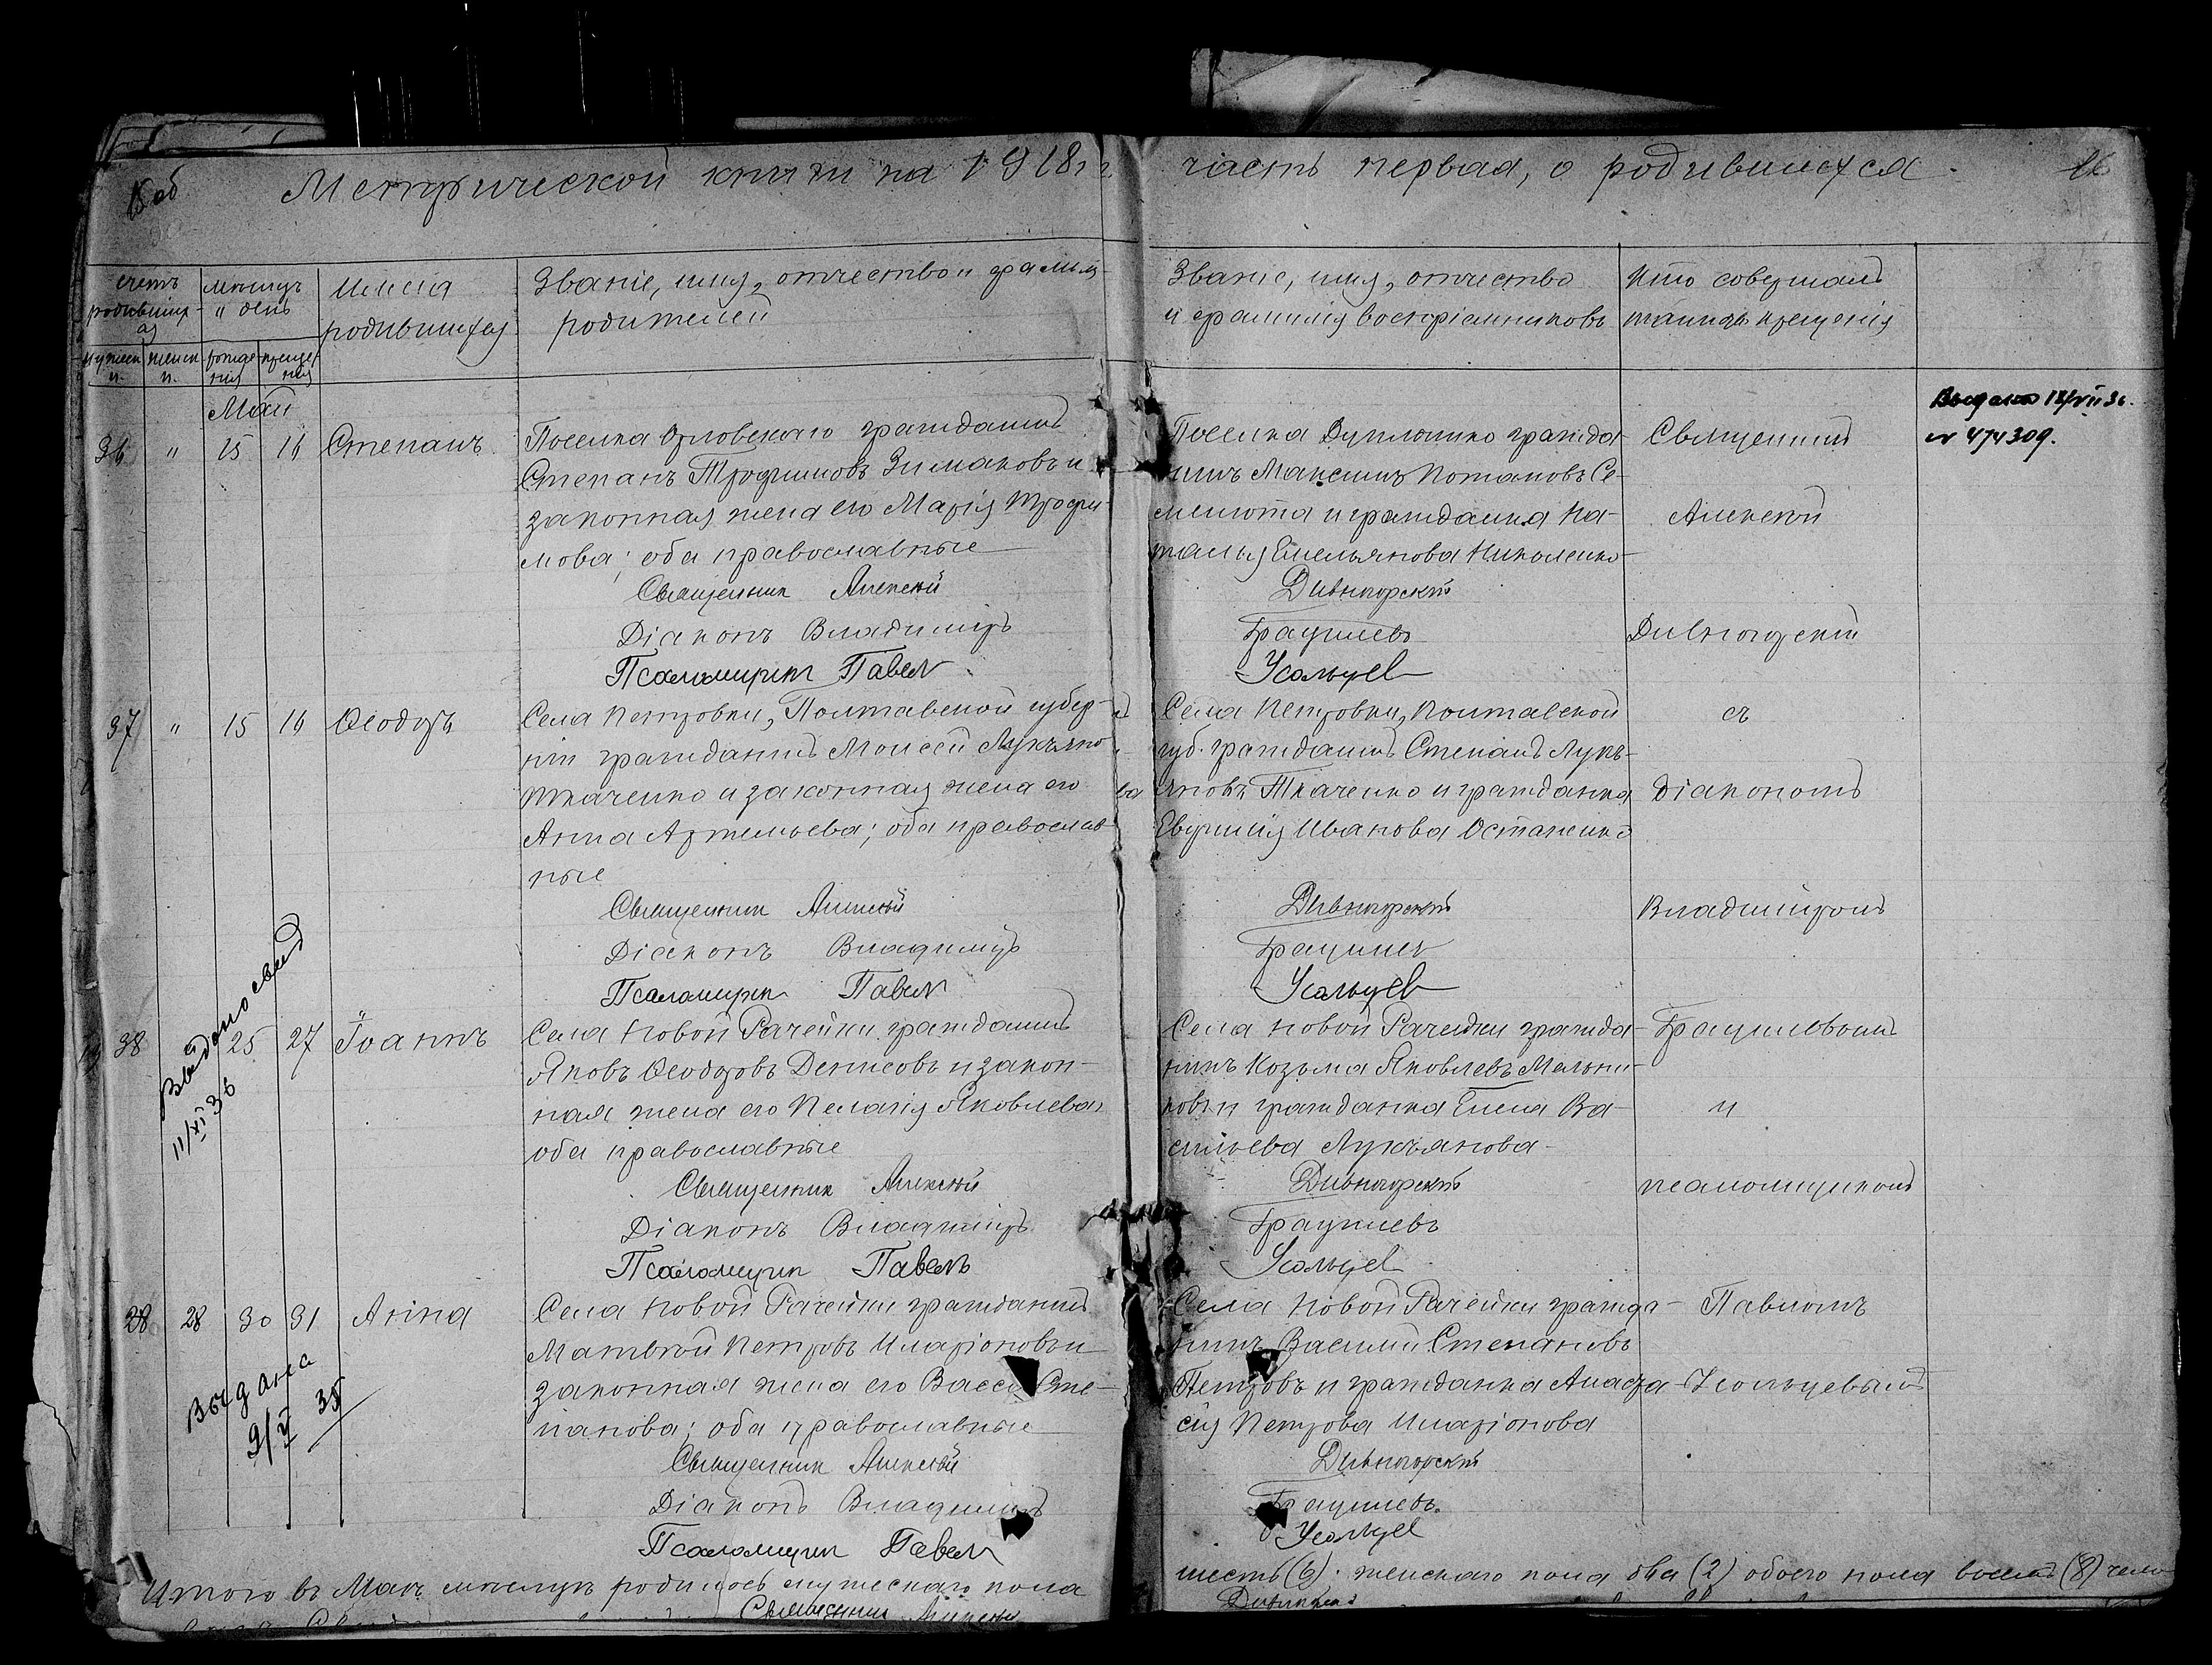 15 об
Метрической книги на 1918 г.
часть первая, о родившихся.
16
счетъ родившихся
мѣсяцъ и день
Имена
родившихся
Званіе, имя, отчество и фамилія
родителей
Званіе, имя, отчество
и фамилія воспріемниковъ
Кто совершалъ
таинство крещенія
мужеск. п.
женск. п.
рожденія
крещенія
Май
36 " 15 16 Степанъ
Поселка Орловскаго гражданинъ
Степанъ Трофимовъ Зимаковъ и
законная жена его Марія Трофи-
мова; оба православные
Священник Алексей
Діаконъ Владимиръ
Псаломщик Павел
Поселка Дуплянко гражда-
нинъ Максимъ Потаповъ Се-
менюта и гражданка На-
талья Емельянова Николенко
Дивногорскій
Грацилевъ
Усольцев
Священникъ
Алексей
Дивногорскій
Выдано 18/VII 36.
№ 474309.
37 " 15 16 Ѳеодоръ
Села Петровки, Полтавской губер-
ніи гражданинъ Моисей Лукьяно
Ткаченко и законная жена его
Анна Артемьева; оба православ-
ные
Священник Алексей
Діаконъ Владимиръ
Псаломщик Павел
Села Петровки, Полтавской
губ. гражданинъ Степанъ Лукь-
яновъ Ткаченко и гражданка
Евфимія Иванова Остапенко
Дивногорскій
Усольцев
съ
Діакономъ
Владимиромъ
38 " 25 27 Іоаннъ
Выдано свид
11/XI 36
Села Новой Рачейки гражданинъ
Яковъ Ѳеодоровъ Денисовъ и закон-
ная жена его Пелагія Яковлева,
оба православные
Священник Алексей
Діаконъ Владимиръ
Псаломщик Павелъ
Села Новой Рачейки гражда-
нинъ Козьма Яковлевъ Мельни-
ковъ и гражданка Елена Ва-
сильева Лукьянова
Дивногорскій
Усольцев
и
псаломщикомъ
28 30 31 Анна
Выдана
9/V 35
Села Новой Рачейки гражданинъ
Матвей Петровъ Иларіоновъ и
законная жена его Васса Сте-
панова; оба православные
Священник Алексей
Діаконъ Владимиръ
Псаломщик Павел
Села Новой Рачейки гражда-
нинъ Василій Степановъ
Петровъ и гражданка Анаста-
сія Петрова Иларіонова
Дивногорскій
Усольцев
Павломъ
Усольцевымъ
Итого въ Маѣ мѣсяцѣ родилось мужескаго пола
шесть (6). женскаго пола два (2) обоего пола восемь (8) чело
Священник Алексей